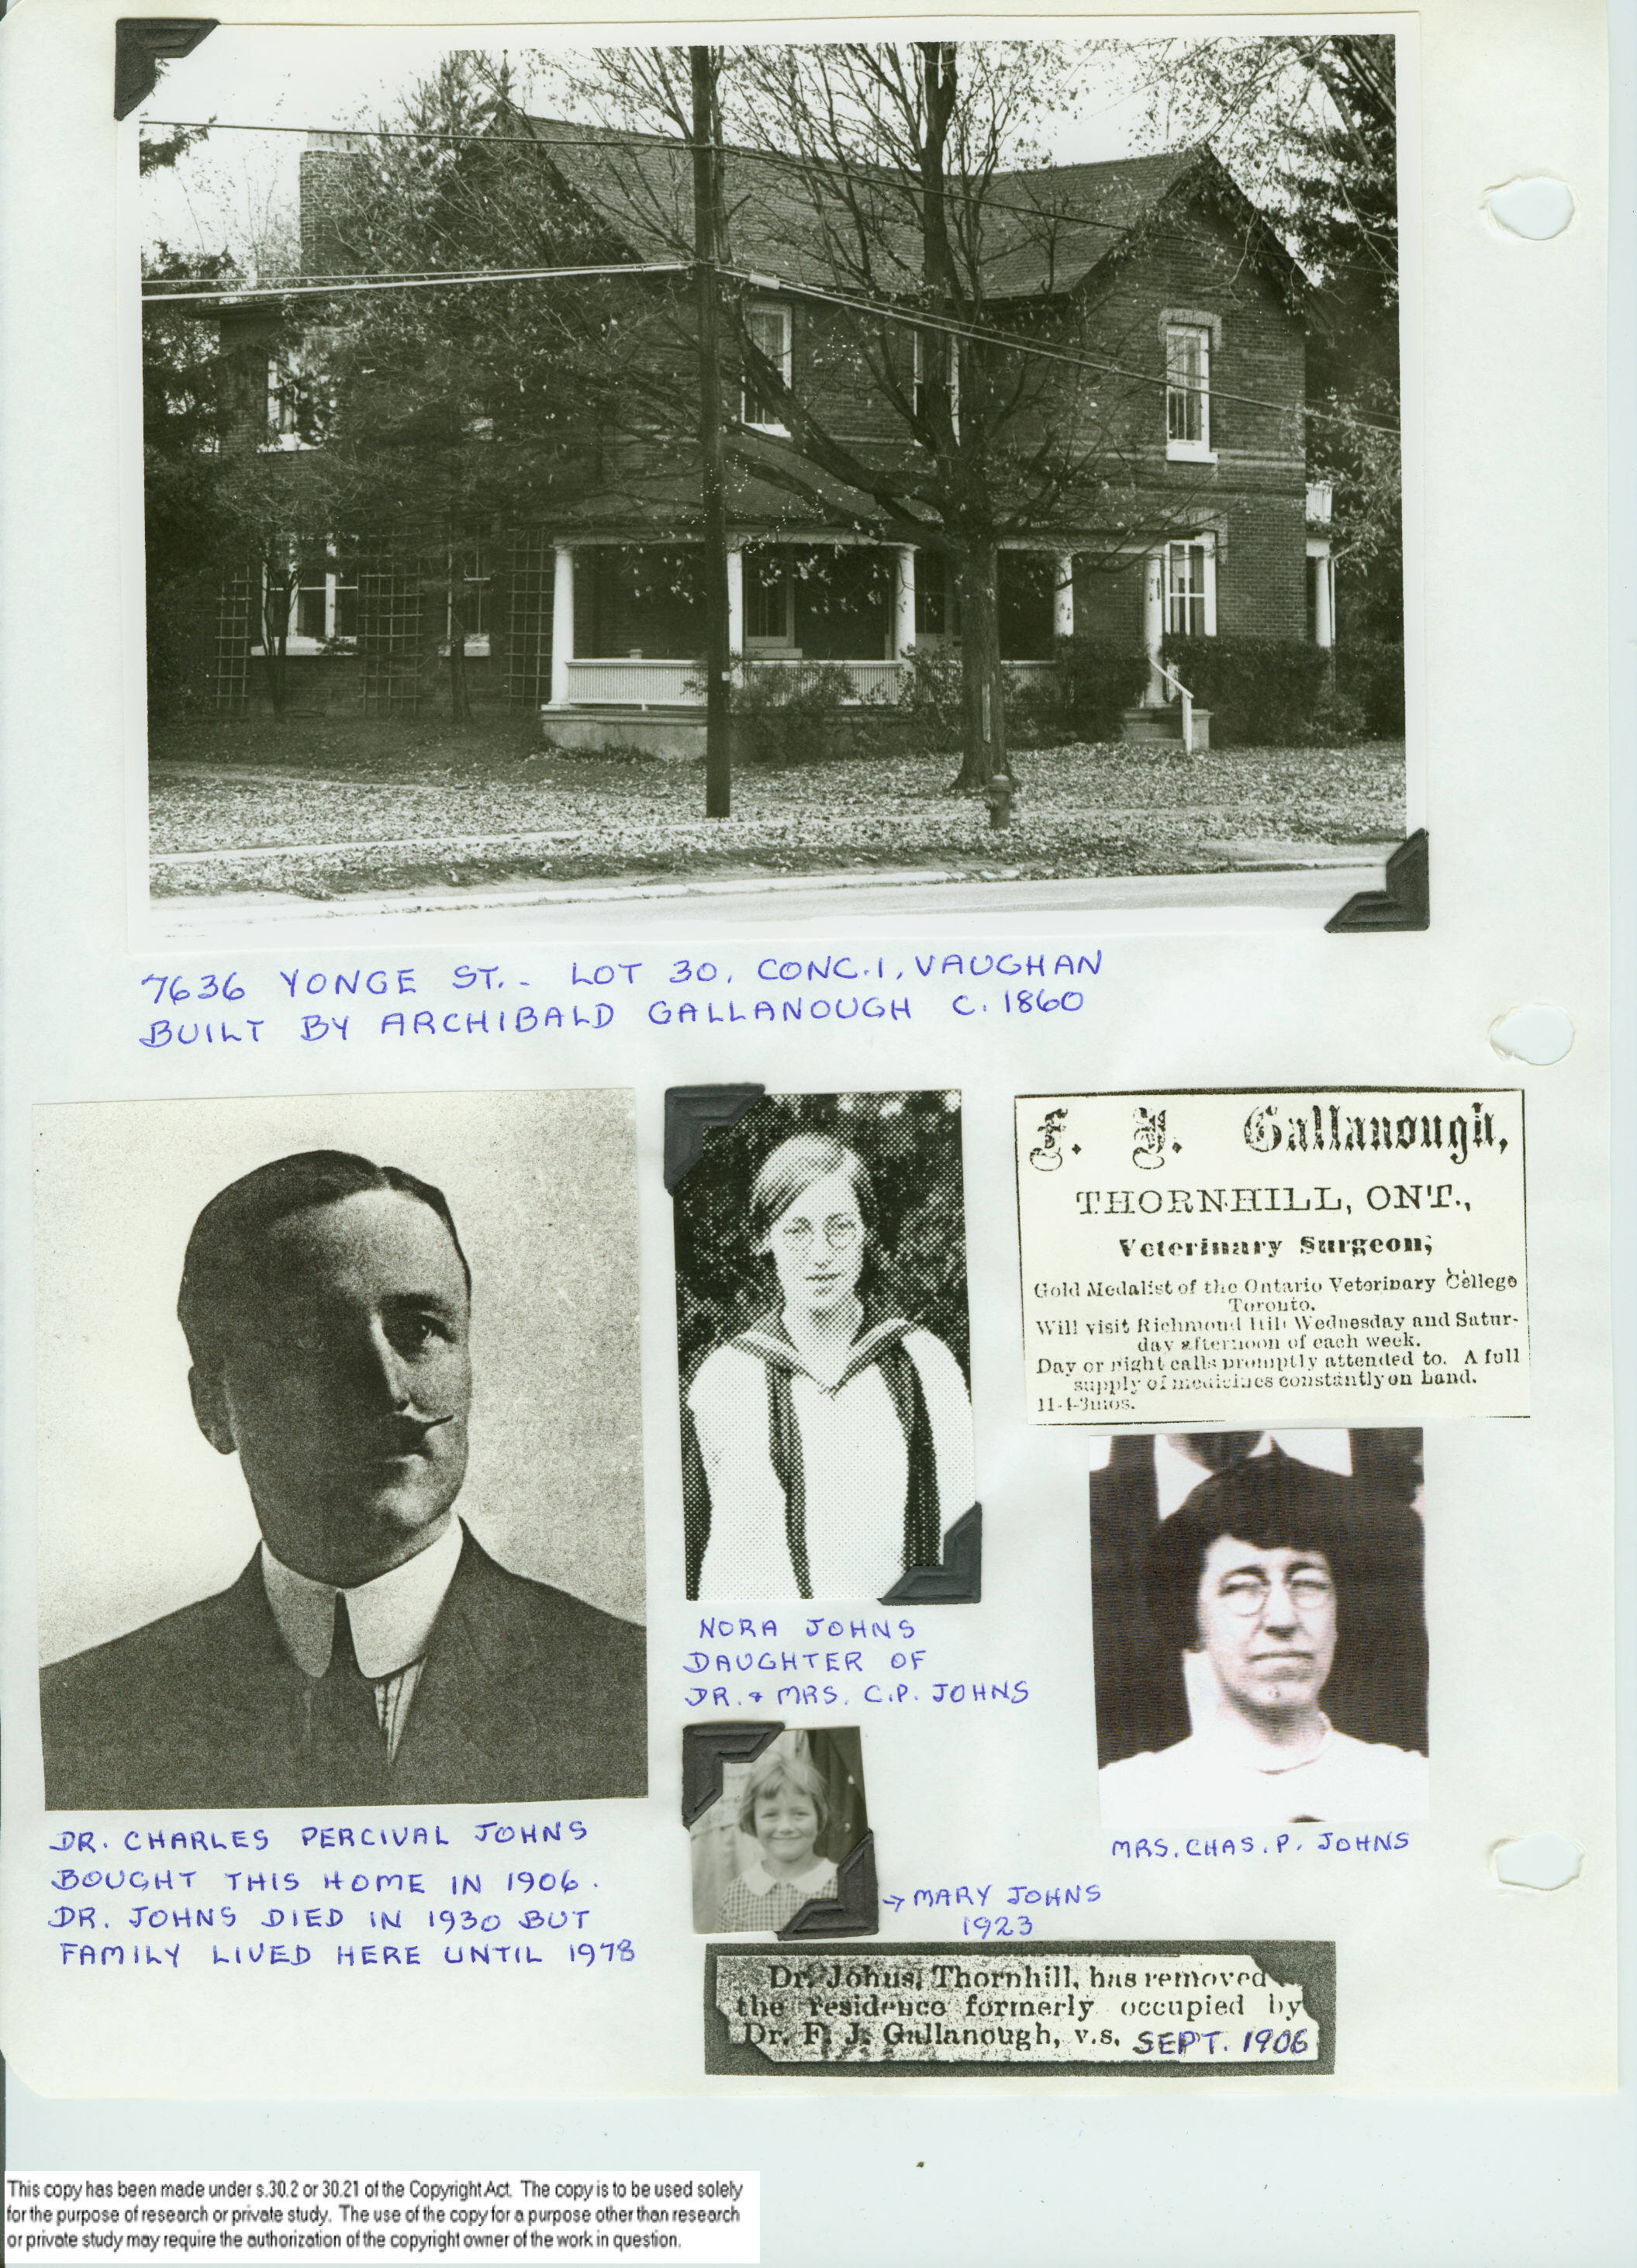 7636 YONGE ST. - LOT 30, CONC. 1, VAUGHAN
BUILT BY ARCHIBALD GALLANOUGH C. 1860
F. J. Gallanough,
THORNHILL, ONT.,
Veterinary Surgeon,
Gold Medalist of the Ontario Veterinary College
Toronto.
Will visit Richmond Hill Wednesday and Satur-
day afternoon of each week.
Day or night calls promptly attended to. A full
supply of medicines constantly on hand.
11-4-3mos.
NORA JOHNS
DAUGHTER OF
DR. & MRS. C.P. JOHNS
DR. CHARLES PERCIVAL JOHNS
BOUGHT THIS HOME IN 1906.
DR. JOHNS DIED IN 1930 BUT
FAMILY LIVED HERE UNTIL 1978
MRS. CHAS. P. JOHNS
→ MARY JOHNS
1923
Dr. Johns, Thornhill, has removed
the residence formerly occupied by
Dr. F. J. Gallanough, v.s. SEPT. 1906
This copy has been made under s.30.2 or 30.21 of the Copyright Act. The copy is to be used solely
for the purpose of research or private study. The use of the copy for a purpose other than research
or private study may require the authorization of the copyright owner of the work in question.